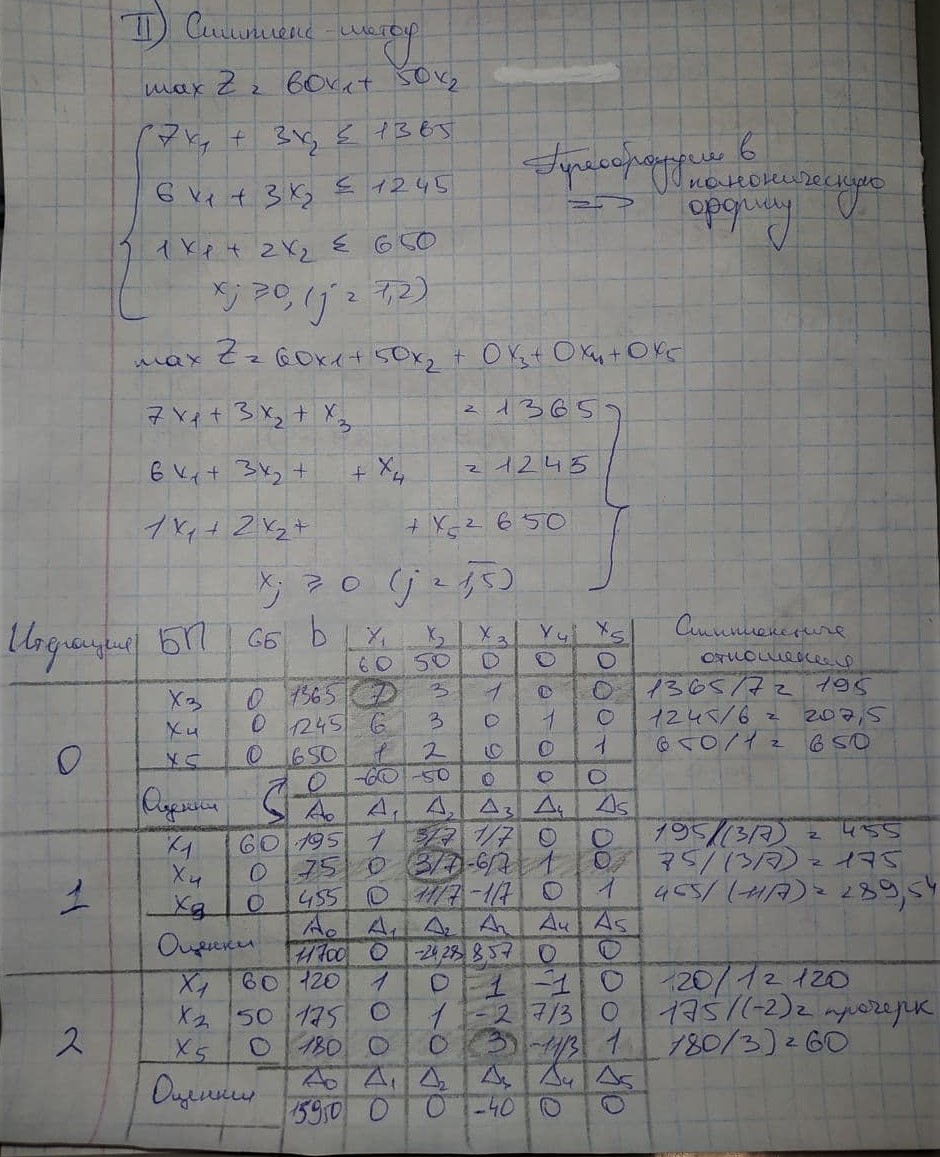 II) Симплекс-метод
max Z = 60x₁ + 50x₂
7x₁ + 3x₂ ≤ 1365
6x₁ + 3x₂ ≤ 1245
1x₁ + 2x₂ ≤ 650
xⱼ ≥ 0, (j = 1,2)
Преобразуем в
каноническую
=> форму
max Z = 60x₁ + 50x₂ + 0x₃ + 0x₄ + 0x₅
7x₁ + 3x₂ + x₃ = 1365
6x₁ + 3x₂ + + x₄ = 1245
1x₁ + 2x₂ + + x₅ = 650
xⱼ ≥ 0 (j = 1,5)
Итерация БП СБ b x₁ x₂ x₃ x₄ x₅ Симплексные
60 50 0 0 0 отношения
0
x₃ 0 1365 7 3 1 0 0 1365/7 = 195
x₄ 0 1245 6 3 0 1 0 1245/6 = 207,5
x₅ 0 650 1 2 0 0 1 650/1 = 650
0 -60 -50 0 0 0
Оценки Δ₀ Δ₁ Δ₂ Δ₃ Δ₄ Δ₅
1
x₁ 60 195 1 3/7 1/7 0 0 195/(3/7) = 455
x₄ 0 75 0 3/7 -6/7 1 0 75/(3/7) = 175
0 455 0 11/7 -1/7 0 1 455/(-11/7) = 289,54
Δ₀ Δ₁ Δ₂ Δ₃ Δ₄ Δ₅
Оценки 11700 0 -24,28 8,57 0 0
2
x₁ 60 120 1 0 1 -1 0 120/1 = 120
x₂ 50 175 0 1 -2 7/3 0 175/(-2) = прочерк
x₅ 0 180 0 0 3 -11/3 1 180/3) = 60
Δ₀ Δ₁ Δ₂ Δ₃ Δ₄ Δ₅
Оценки 15950 0 0 -40 0 0